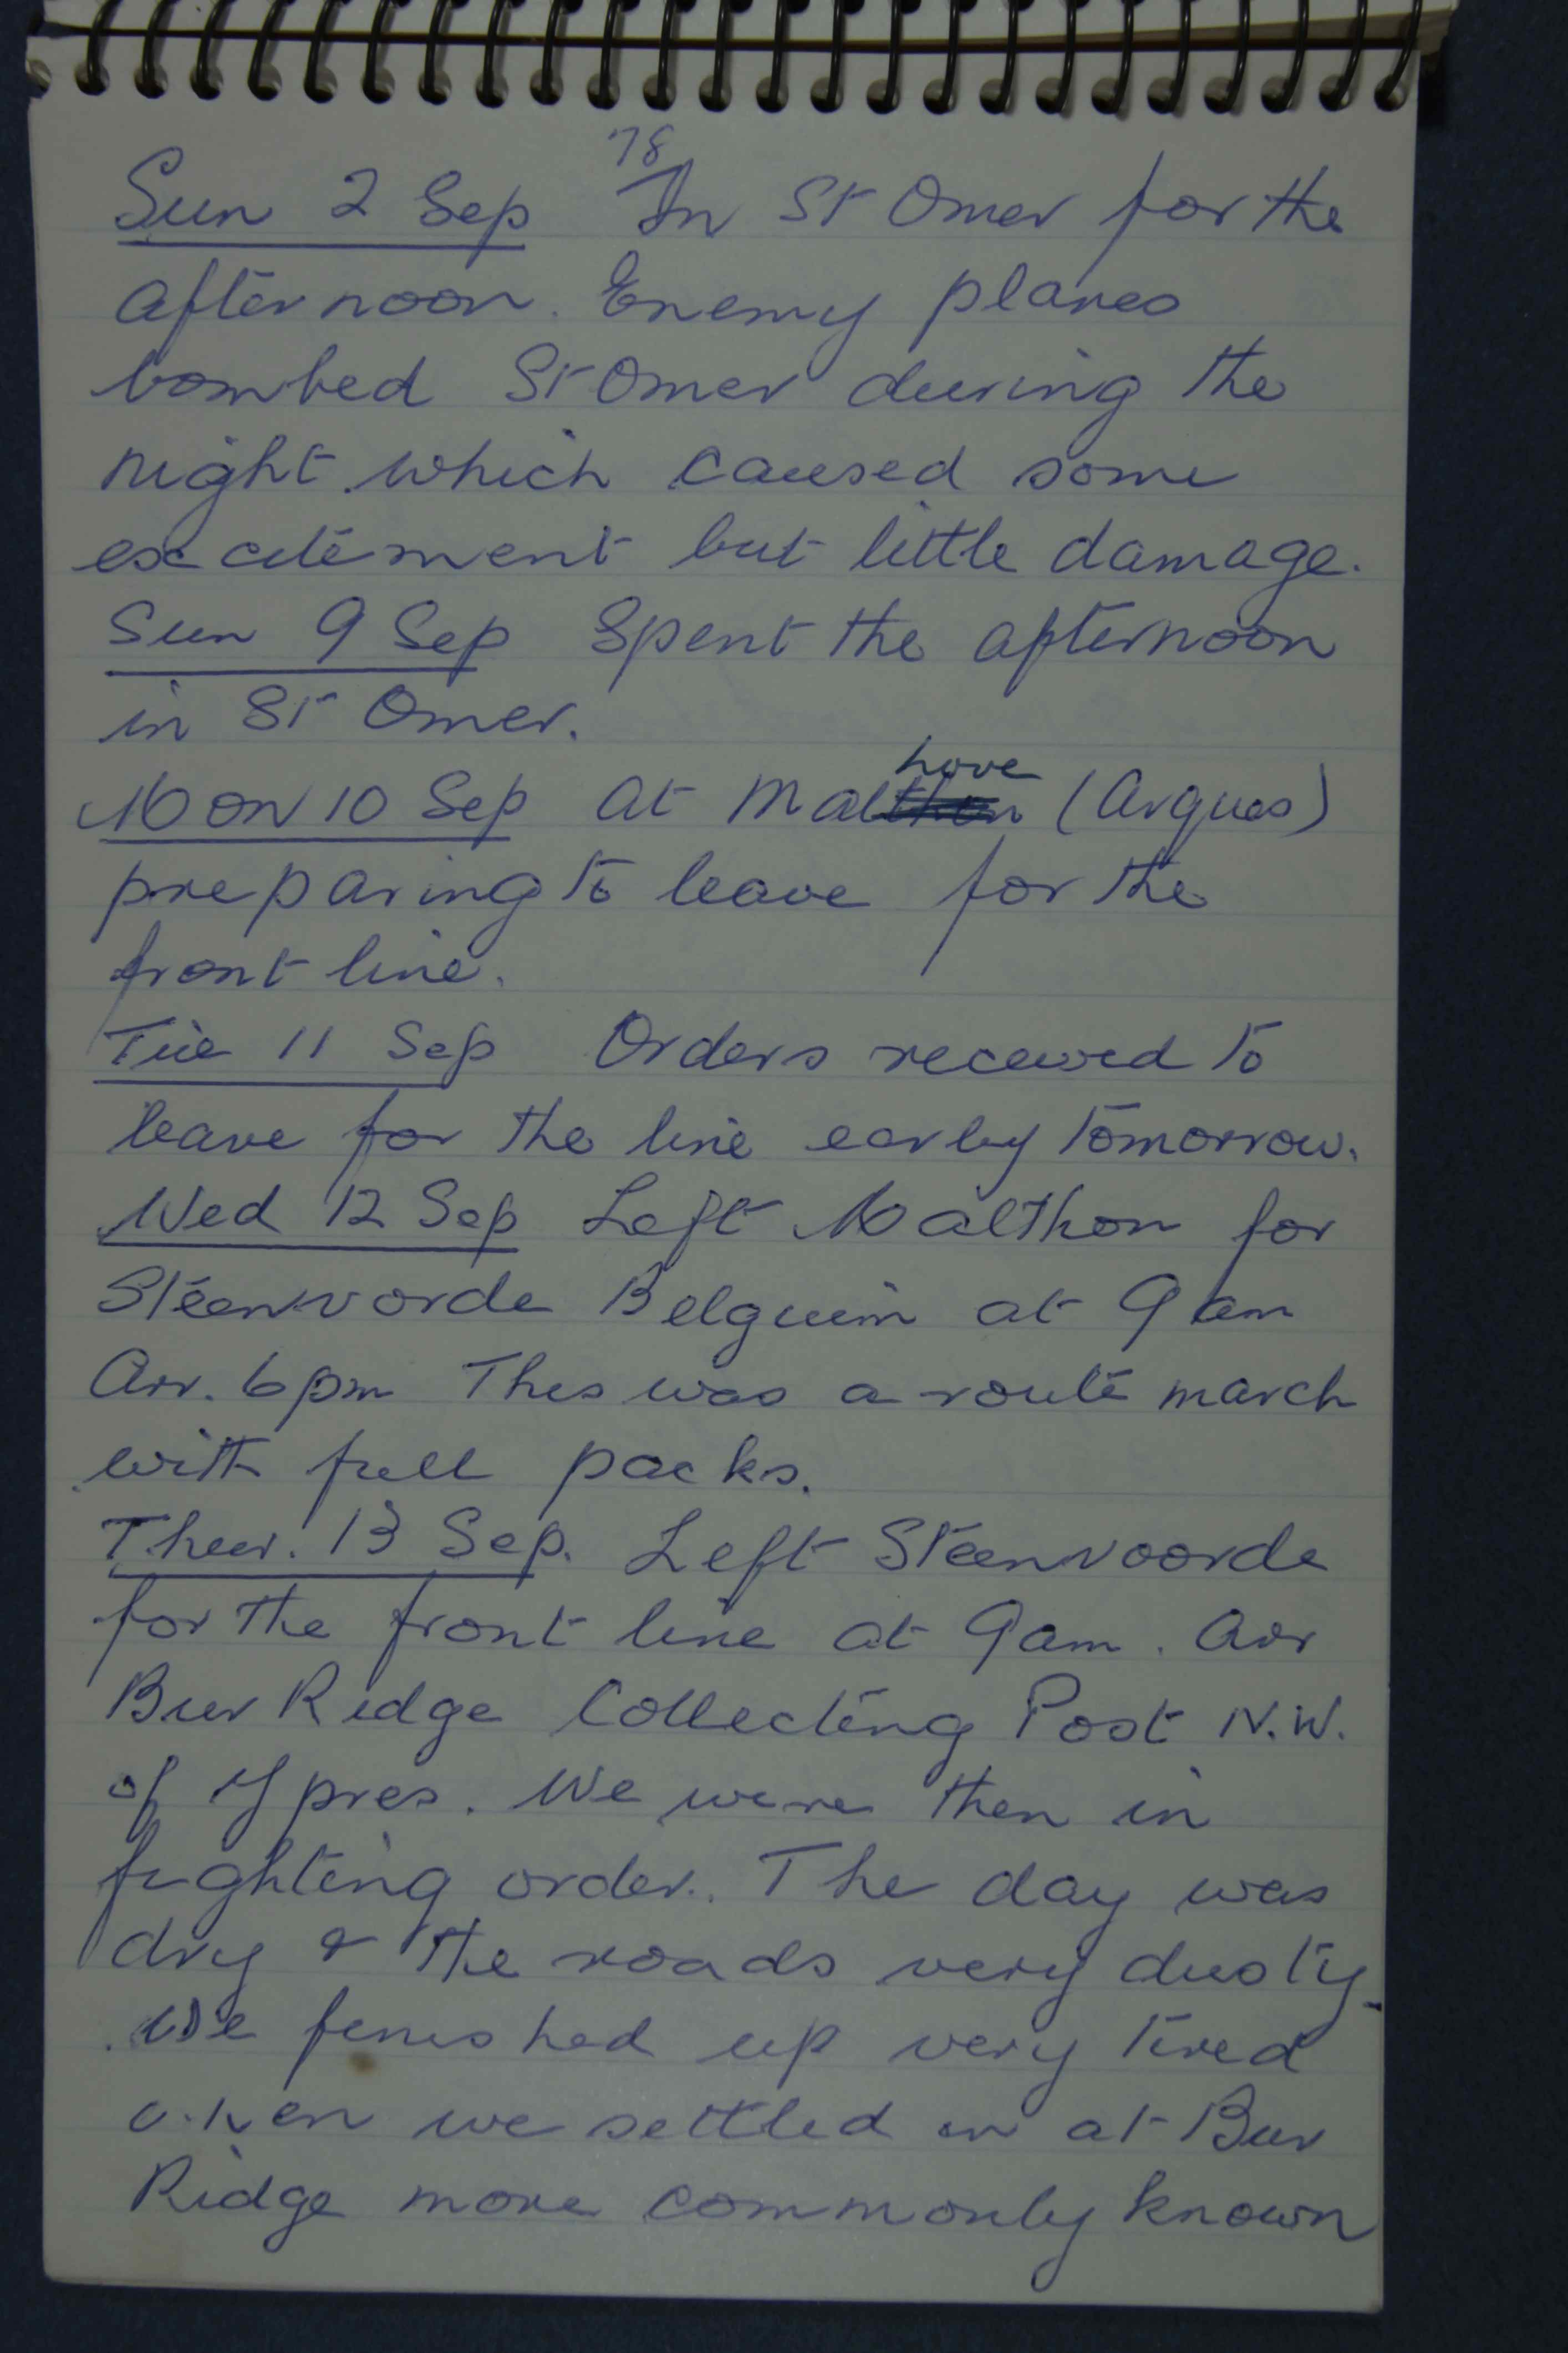 78
Sun 2 Sep In St Omer for the
afternoon. Enemy planes
bombed St Omer during the
night which caused some
excitement but little damage.
Sun 9 Sep Spent the afternoon
in St Omer.
hove
Mon 10 Sep at Malthon (Arques)
preparing to leave for the
front line.
Tue 11 Sep Orders received to
leave for the line early tomorrow.
Wed 12 Sep Left Malthon for
Steenvorde Belguim at 9 am
Arr. 6pm This was a route march
with full packs.
Thur. 13 Sep. Left Steenvoorde
for the front line at 9am. Arr
Bur Ridge Collecting Post N.W.
of Ypres. We were then in
fighting order. The day was
dry & the roads very dusty.
We finished up very tired
when we settled in at Bur
Ridge more commonly known